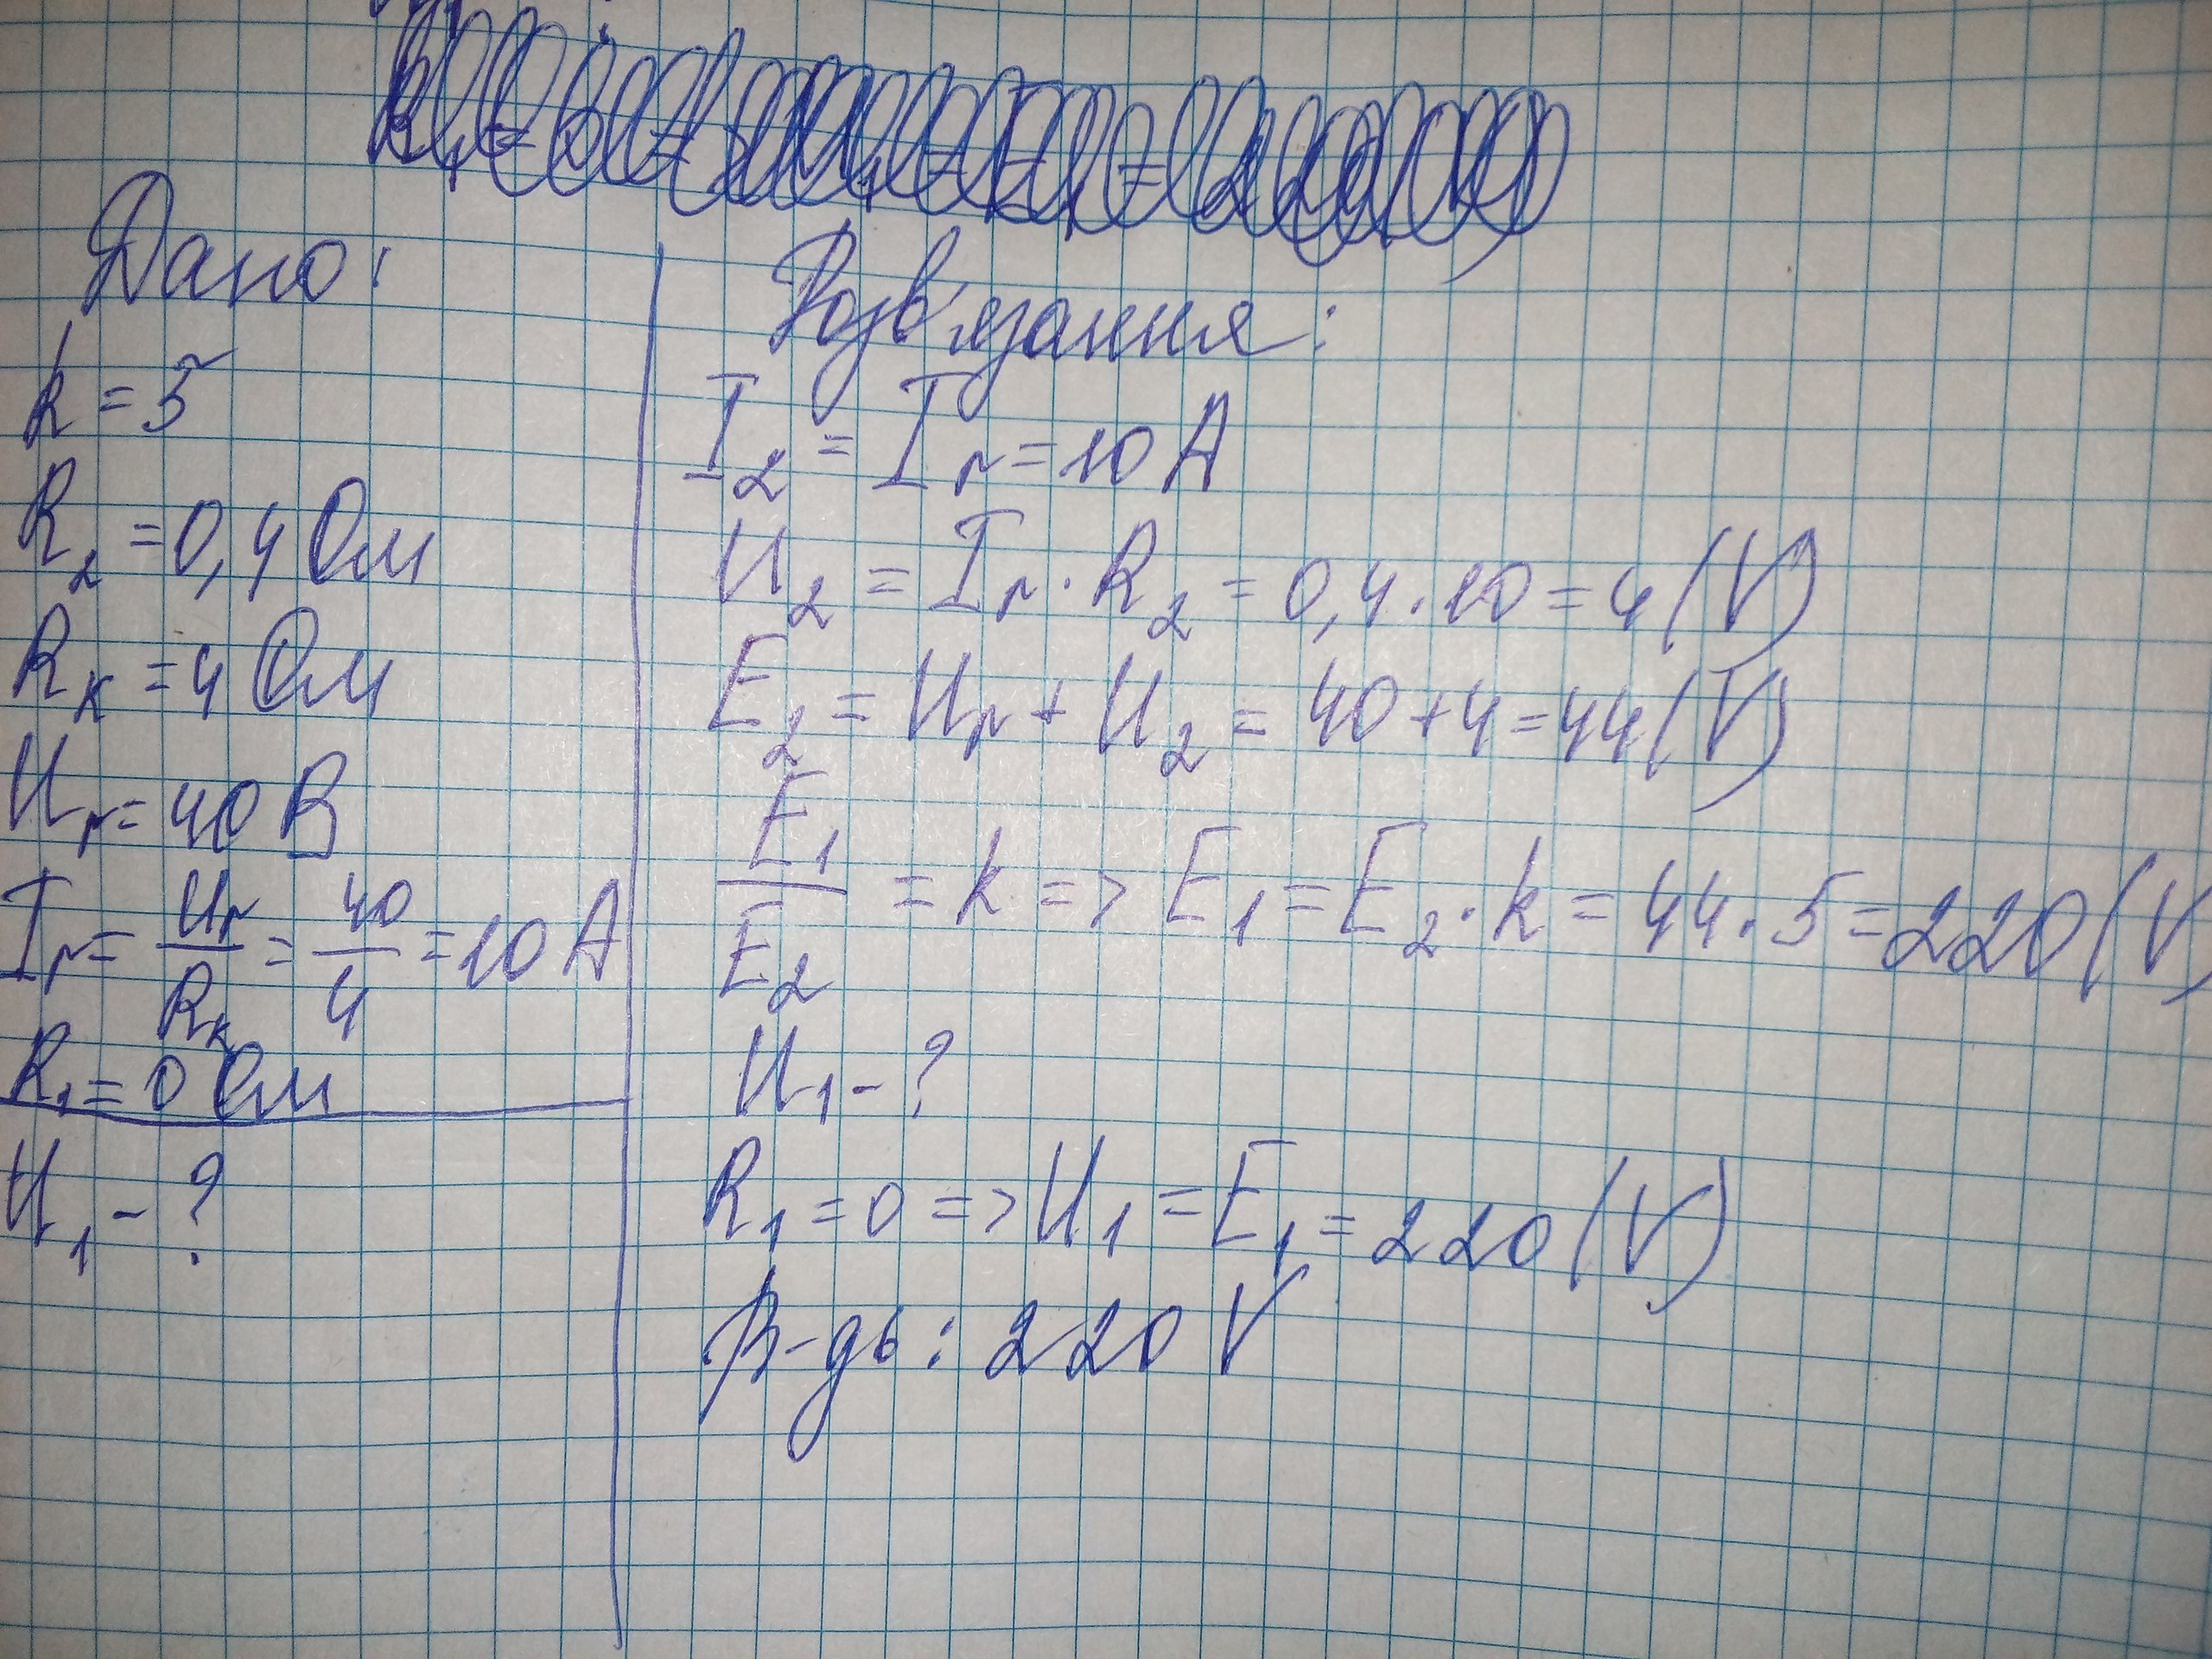 Дано:
k = 5
R₂ = 0,4 Ом
Rк = 4 Ом
Uн = 40 В
Iн = Uн/Rк = 40/4 = 10 А
R₁ = 0 Ом
U₁ - ?
Розв'язання:
I₂ = Iн = 10 А
U₂ = Iн · R₂ = 0,4 · 10 = 4 (V)
E₂ = Uн + U₂ = 40 + 4 = 44 (V)
E₁/E₂ = k => E₁ = E₂ · k = 44 · 5 = 220 (V)
U₁ - ?
R₁ = 0 => U₁ = E₁ = 220 (V)
В-дь: 220 V